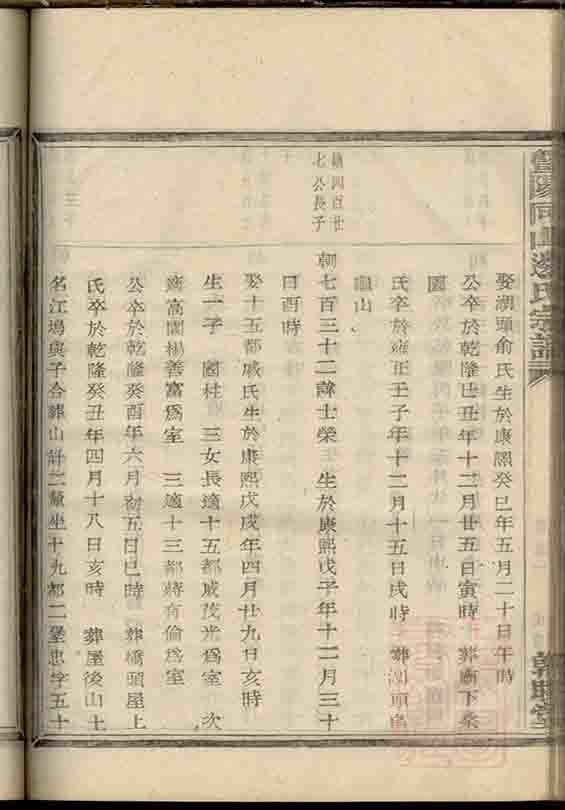 暨陽同山邊氏宗譜
娶湖頭俞氏生於康熙癸巳年五月二十日午時
公卒於乾隆己丑年十二月廿五日寅時 葬廟下桑
園
氏卒於雍正壬子年十二月十五日戌時 葬湖頭
山
朝七百三十二諱士榮 生於康熙戊子年十二月三十
日酉時
四百廿
七公長子
娶十五都戚氏生於康熙戊戌年四月廿九日亥時
生一子 國柱 三女長適十五都戚茂光爲室 次
適高園楊善富爲室 三適十三都蔣有倫爲室
公卒於乾隆癸酉年六月初五日巳時 葬橋頭屋上
氏卒於乾隆癸丑年四月十八日亥時 葬屋後山土
名江塢與子合葬山計二釐坐十九都二堡忠字五十